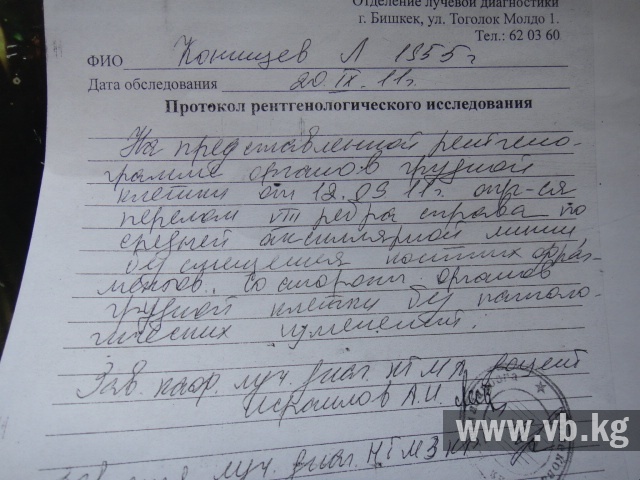 Отделение лучевой диагностики
г. Бишкек, ул. Тоголок Молдо 1.
Тел.: 62 03 60
ФИО Конищев Л 1955г
Дата обследования 20.IX.11г.
Протокол рентгенологического исследования
На представленной рентгено-
грамме органов грудной
клетки от 12.09.11г. опр-ся
перелом VIII ребра справа по
средней аксиллярной линии
без смещения костных фраг-
ментов. Со стороны органов
грудной клетки без патоло-
гических изменений.
Зав. каф. луч. диаг. КГМА доцент
Исраилов А.И.
луч. диаг.
www.vb.kg